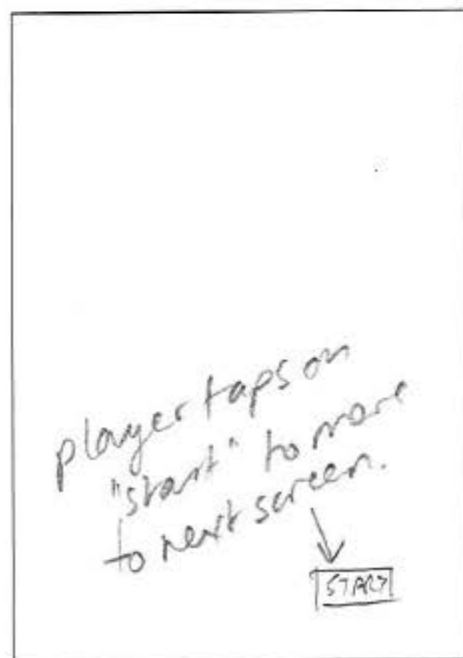 player taps on
"start" to move
to next screen.
START